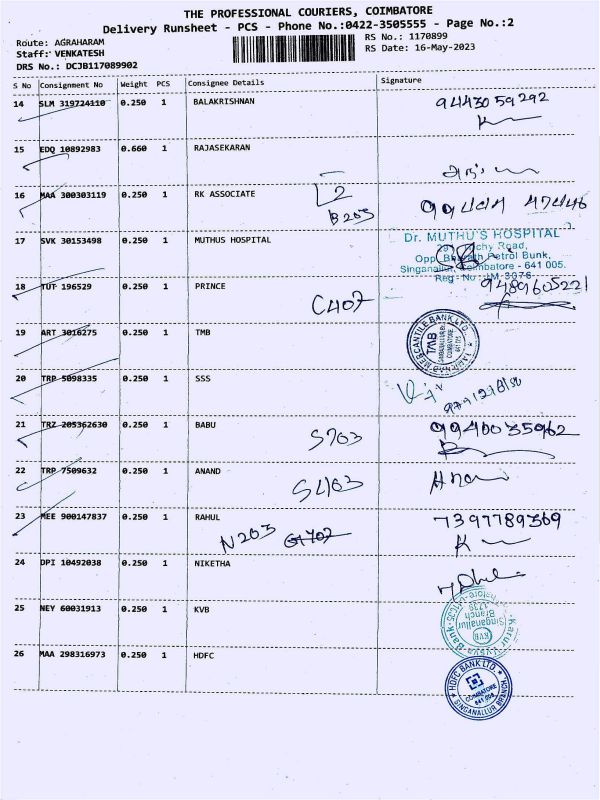 THE PROFESSIONAL COURIERS, COIMBATORE
Delivery Runsheet - PCS - Phone No.:0422-3505555 - Page No.:2
Route: AGRAHARAM
Staff: VENKATESH
DRS No.: DCJB117089902
RS No.: 1170899
RS Date: 16-May-2023
S No Consignment No Weight PCS Consignee Details Signature
14 SLM 319724110 0.250 1 BALAKRISHNAN 9443059292
15 EDQ 10892983 0.660 1 RAJASEKARAN
16 MAA 300303119 0.250 1 RK ASSOCIATE
B203
17 SVK 30153498 0.250 1 MUTHUS HOSPITAL
Dr. MUTHU'S HOSPITAL
Road,
Opp. Bharath Petrol Bunk,
Singanallur, Coimbatore - 641 005.
Reg No
18 TUT 196529 0.250 1 PRINCE C407 9489605221
19 ART 3016275 0.250 1 TMB
TAMILNAD MERCANTILE BANK LTD.
TMB
SINGANALLUR
COIMBATORE
641 005
20 TRP 5098335 0.250 1 SSS
21 TRZ 205362630 0.250 1 BABU S703 9940035962
22 TRP 7509632 0.250 1 ANAND S403
23 MEE 900147837 0.250 1 RAHUL N203 7397789369
24 DPI 10492038 0.250 1 NIKETHA
25 NEY 60031913 0.250 1 KVB
Karur Vysya Bank
KVB
Singanallur
Branch
26 MAA 298316973 0.250 1 HDFC
HDFC BANK LTD.
COIMBATORE
SINGANALLUR BRANCH